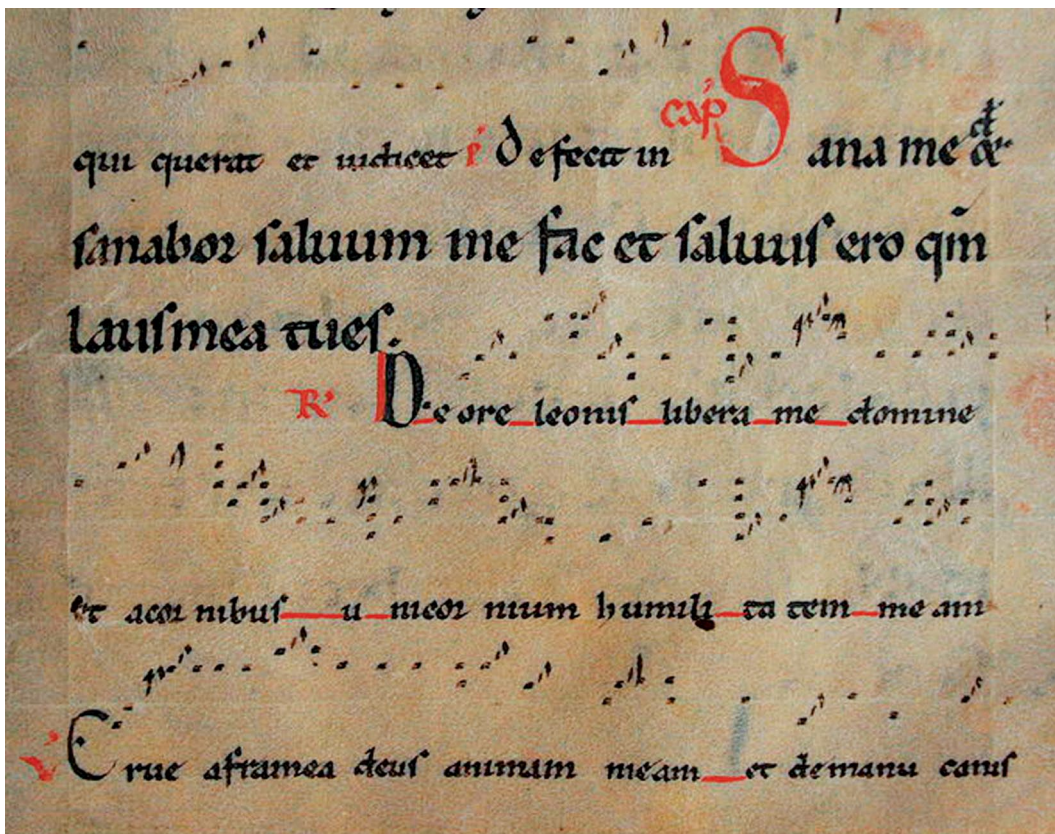 qui querat et iudicet ℟ Defecit in cap̄ Sana me dn̄e
sanabor saluum me fac et saluus ero qm̄
laus mea tu es.
℟ De ore leonis libera me domine
et acor nibus u nicor nium humili ta tem me am
℣ Erue a framea deus animam meam et de manu canis